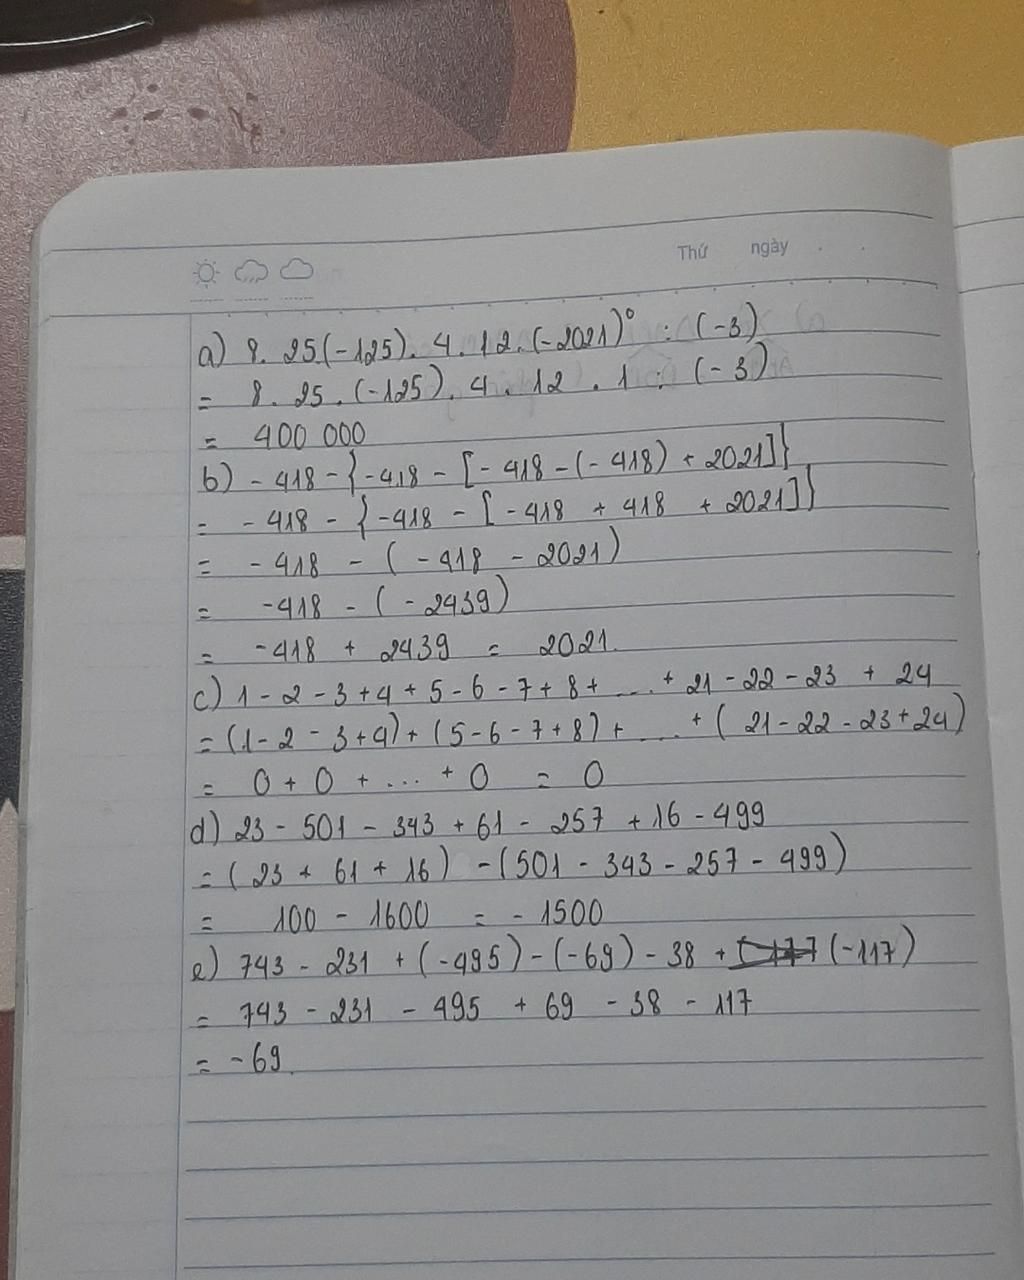 Thứ ngày . .
a) 8. 25(-125). 4. 12.(-2021)⁰ : (-3)
= 8. 25. (-125). 4. 12 . 1 : (-3)
= 400 000
b) - 418 - {-418 - [- 418 - (- 418) + 2021]}
= - 418 - {-418 - [- 418 + 418 + 2021]}
= - 418 - ( - 418 - 2021)
= -418 - ( - 2439)
= -418 + 2439 = 2021.
c) 1 - 2 - 3 + 4 + 5 - 6 - 7 + 8 + ... + 21 - 22 - 23 + 24
= (1 - 2 - 3 + 4) + (5 - 6 - 7 + 8) + ... + ( 21 - 22 - 23 + 24)
= 0 + 0 + ... + 0 = 0
d) 23 - 501 - 343 + 61 - 257 + 16 - 499
= ( 23 + 61 + 16) - (501 - 343 - 257 - 499)
= 100 - 1600 = - 1500
e) 743 - 231 + (-495) - (-69) - 38 + (-117)
= 743 - 231 - 495 + 69 - 38 - 117
= - 69.